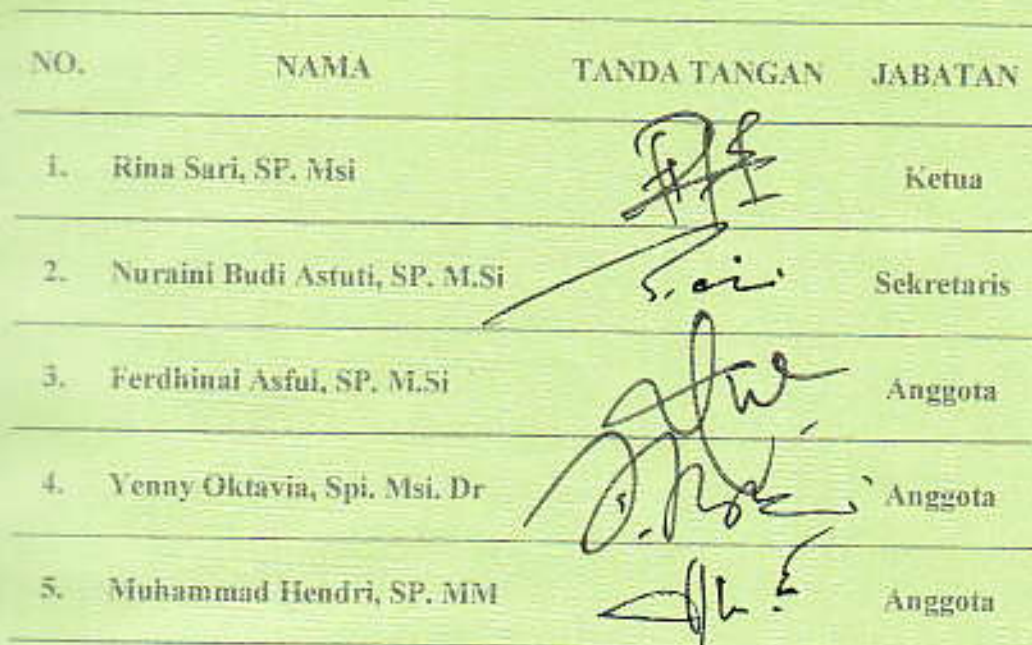 NO. NAMA TANDA TANGAN JABATAN
1. Rina Sari, SP. Msi Ketua
2. Nuraini Budi Astuti, SP. M.Si Sekretaris
3. Ferdhinal Asful, SP. M.Si Anggota
4. Yenny Oktavia, Spi. Msi. Dr Anggota
5. Muhammad Hendri, SP. MM Anggota